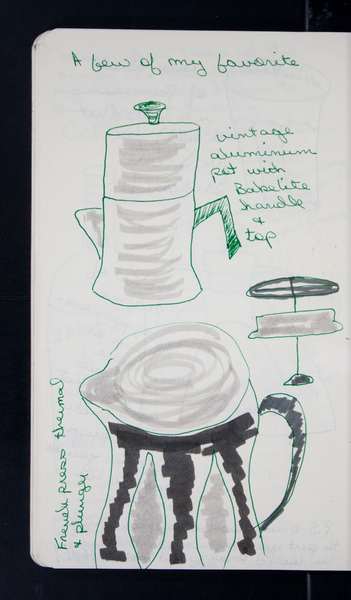 A few of my favorite
vintage
aluminum
pot with
Bakelite
handle
&
top
French press thermal
& plunger